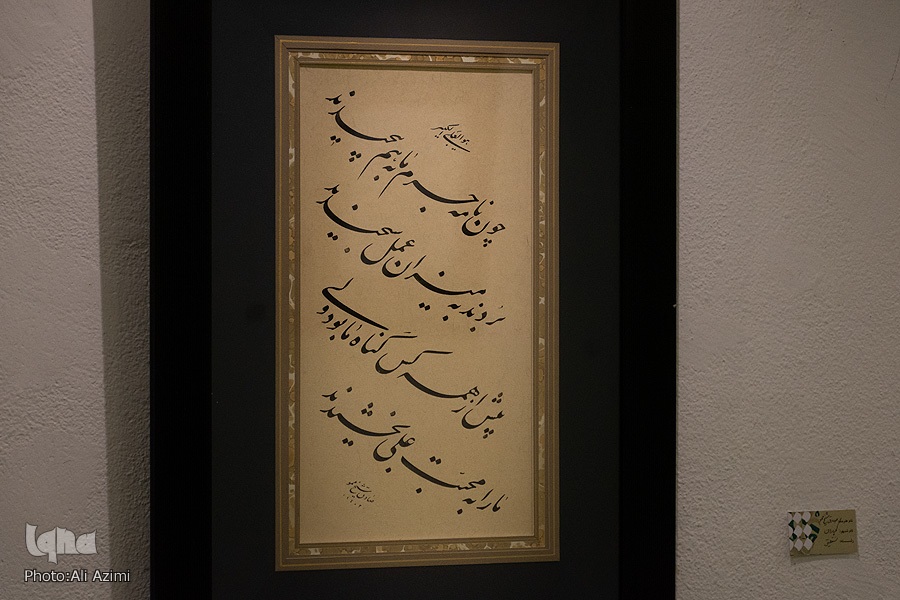 هو العلی الکبیر
چون نامه جرم ما به هم پیچیدند
بردند به میزان عمل سنجیدند
بیش از همه کس گناه ما بود ولی
ما را به محبت علی بخشیدند
Iqna
Photo:Ali Azimi